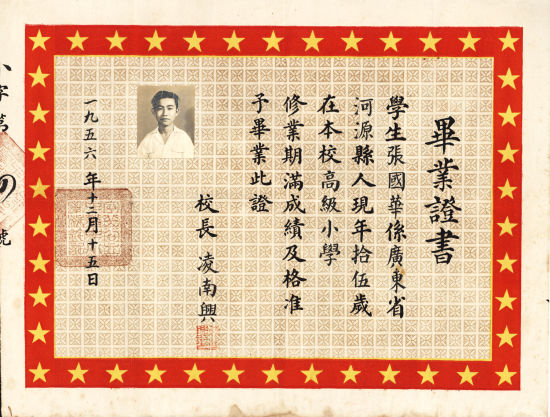 畢業證書
學生張國華係廣東省
河源縣人現年拾伍歲
在本校高級小學
修業期滿成績及格准
予畢業此證
校長 凌南興
一九五六年十二月十五日
小字第
號